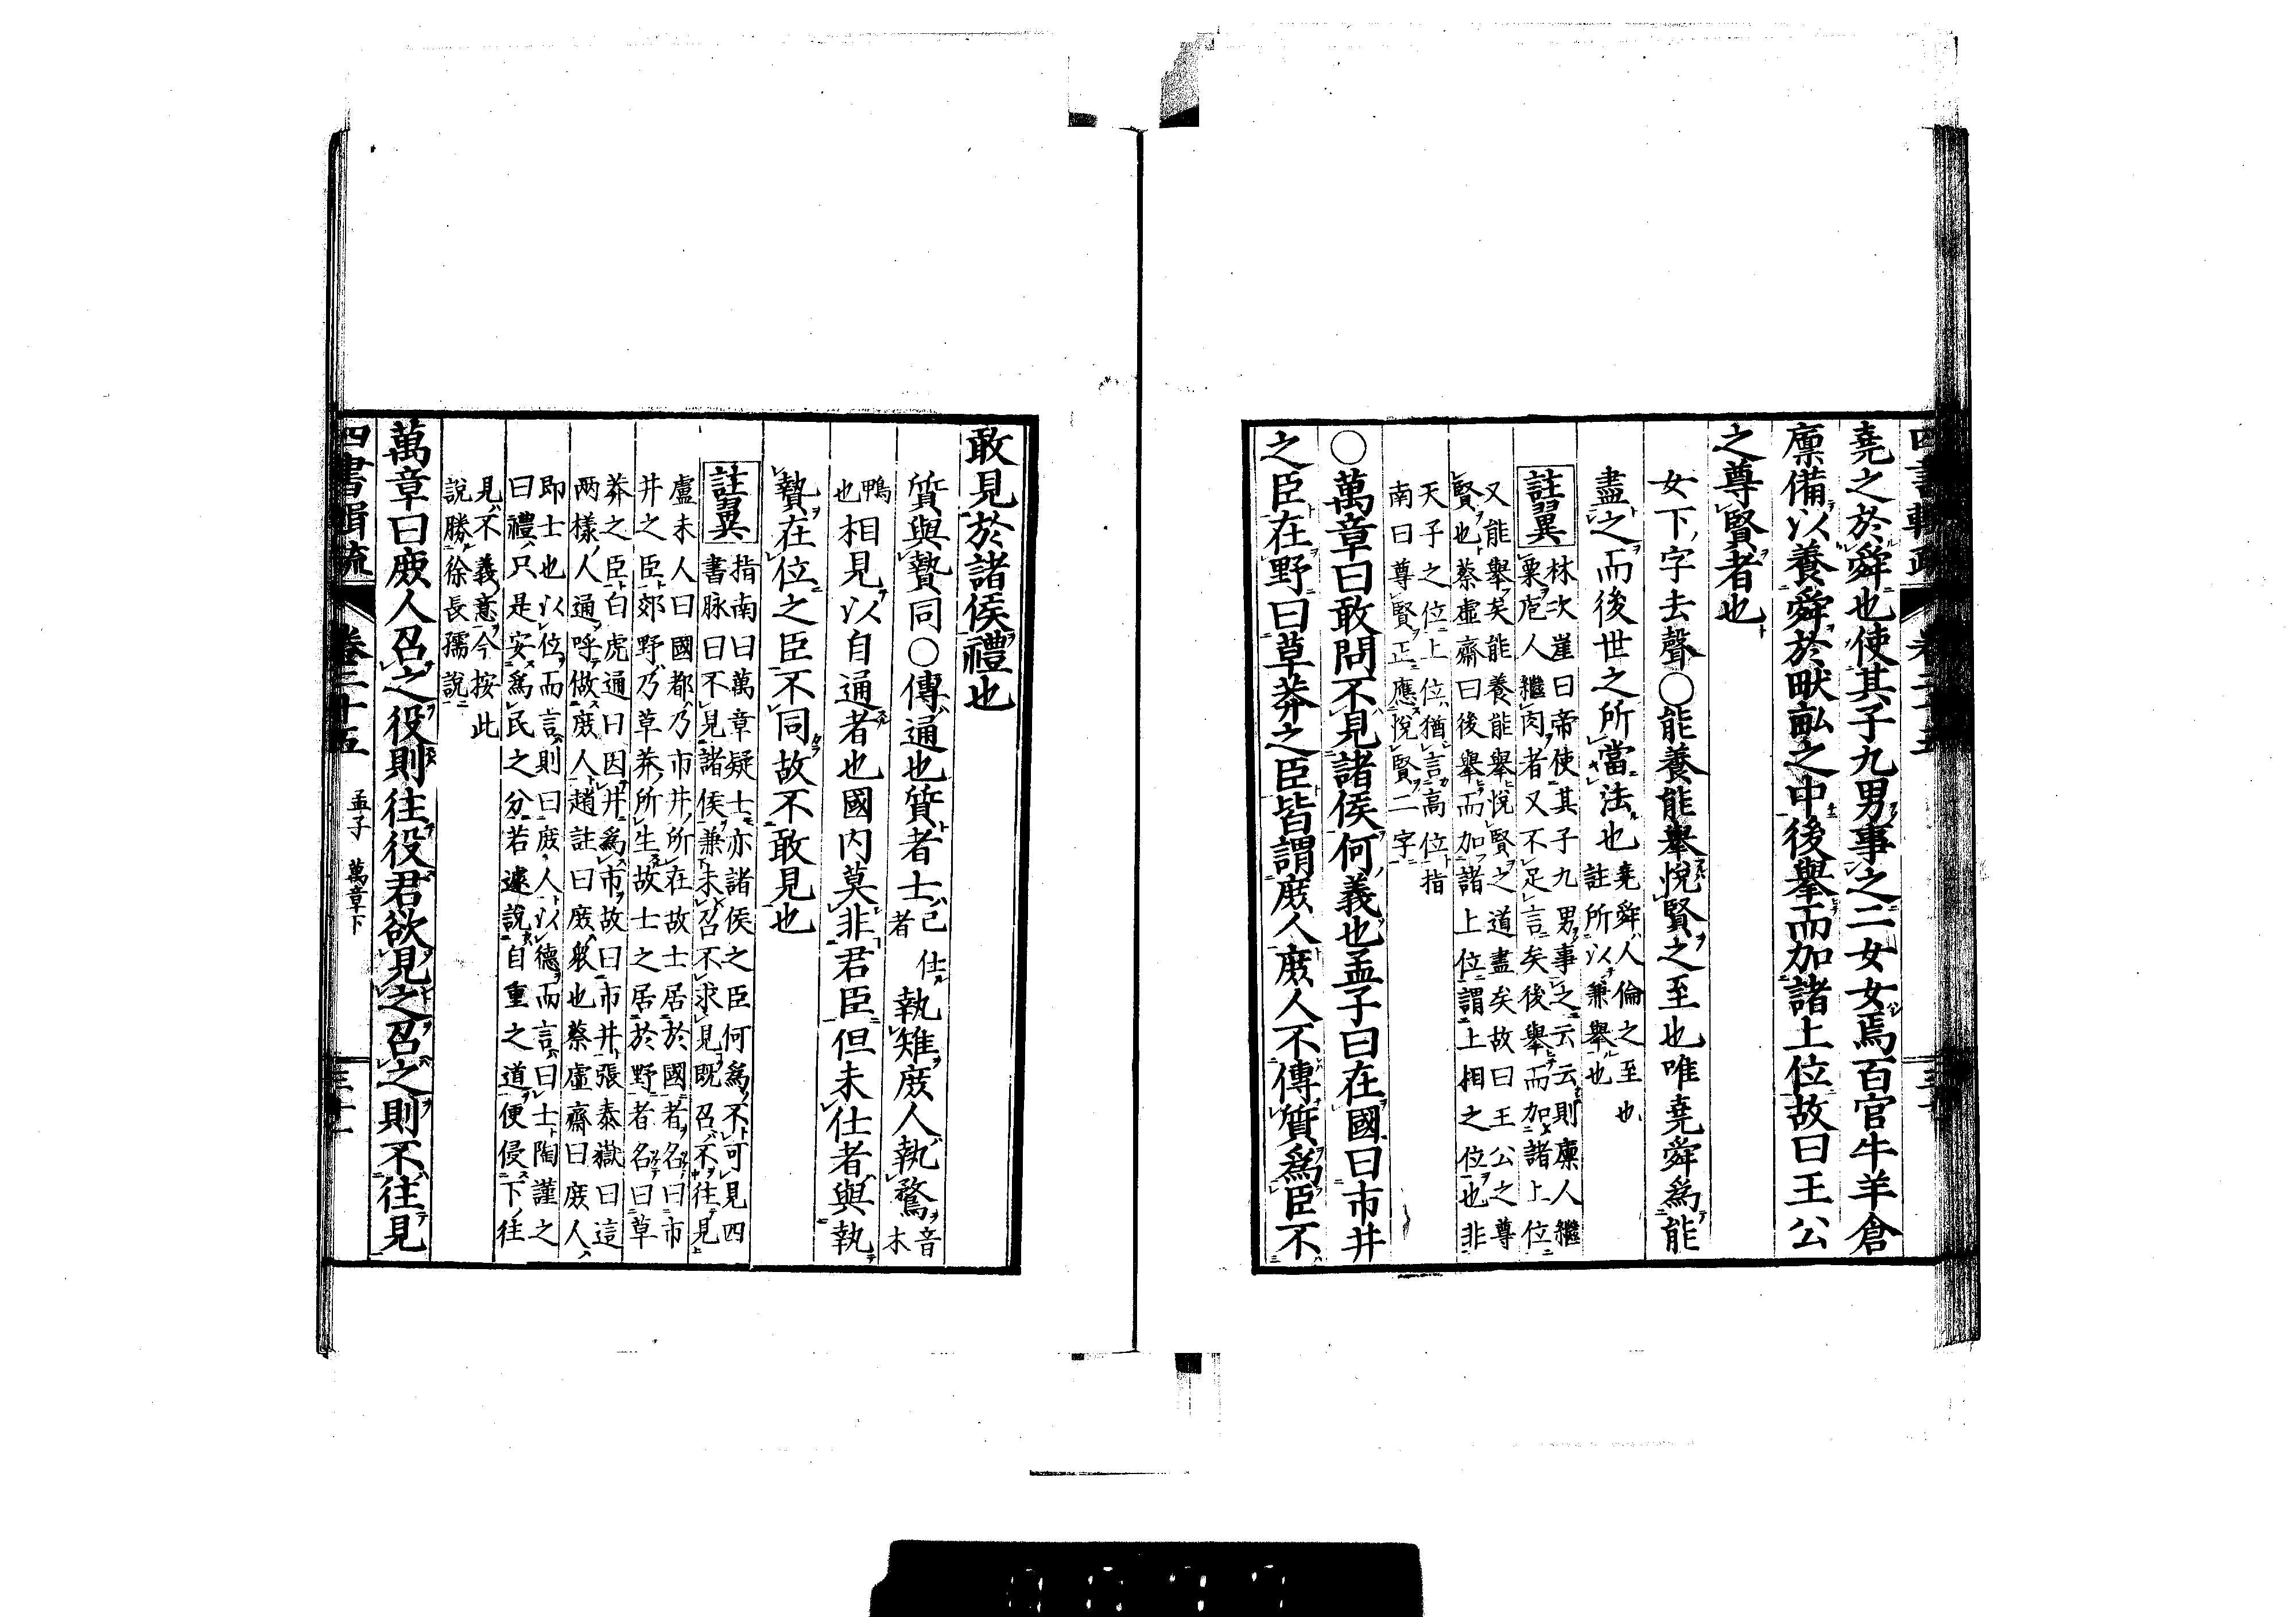 堯之於舜也使其子九男事之二女女焉百官牛羊倉
廩備以養舜於畎畝之中後舉而加諸上位故曰王公
之尊賢者也
女下字去聲○能養能舉悅賢之至也唯堯舜爲能
盡之而後世之所當法也堯舜人倫之至也
註所以兼舉也
註翼林次崖曰帝使其子九男事之云云則廩人繼
粟庖人繼肉者又不足言矣後舉而加諸上位
又能舉矣能養能舉悅賢之道盡矣故曰王公之尊
賢也蔡虛齋曰後舉而加諸上位謂上相之位也非
天子之位上位猶言高位指
南曰尊賢正應悅賢二字
○萬章曰敢問不見諸侯何義也孟子曰在國曰市井
之臣在野曰草莽之臣皆謂庻人庻人不傳質爲臣不
敢見於諸侯禮也
質與贄同○傳通也質者士已仕
者執雉庻人執鶩音
木
鴨
也相見以自通者也國内莫非君臣但未仕者與執
贄在位之臣不同故不敢見也
註翼指南曰萬章疑士亦諸侯之臣何爲不可見四
書脉曰不見諸侯兼未召不求見既召不往見
盧未人曰國都乃市井所在故士居於國者名曰市
井之臣郊野乃草莽所生故士之居於野者名曰草
莽之臣白虎通曰因井爲市故曰市井張泰嶽曰這
两樣人通呼做庻人趙註曰庻衆也蔡虛齋曰庻人
即士也以位而言則曰庻人以德而言曰士陶謹之
曰禮只是安爲民之分若遽說自重之道便侵下往
見不義意今按此
說勝徐長孺說
萬章曰庻人召之役則往役君欲見之召之則不往見
四書輯疏 卷二十五 孟子 萬章下